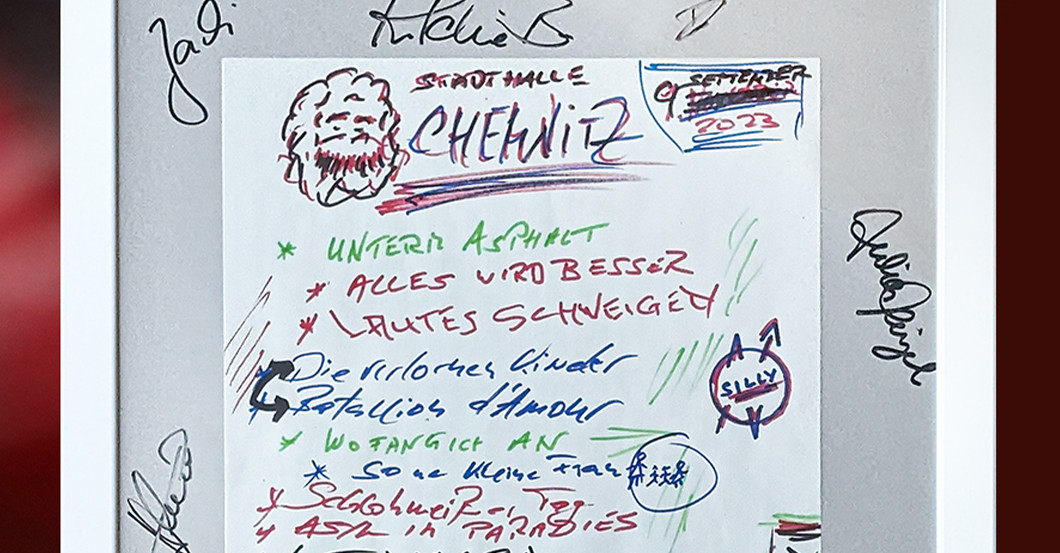 Ritchie B.
STADTHALLE
CHEMNITZ
9 SEPTEMBER
2023
* UNTERM ASPHALT
* ALLES WIRD BESSER
* LAUTES SCHWEIGEN
* Die verlornen Kinder
* Batallion d'Amour
* WO FANG ICH AN
* So ne kleine Frau
SILLY
* Schlohweißer Tag
* ASYL IM PARADIES